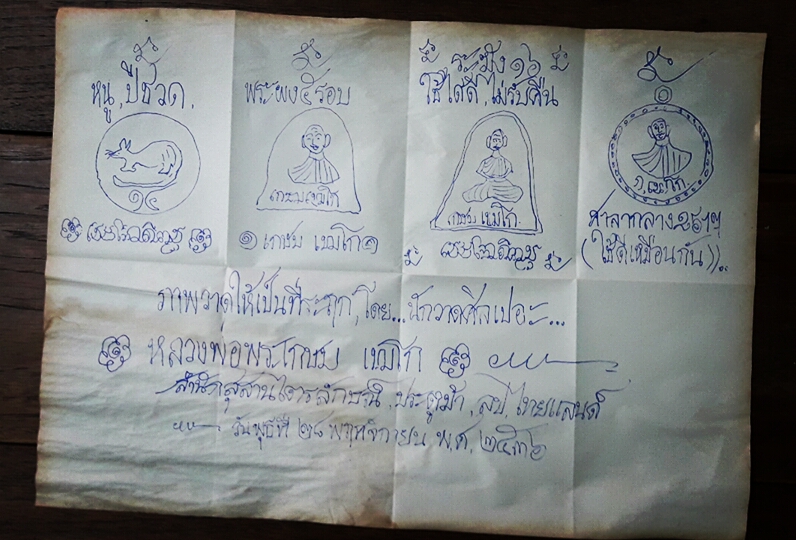 หนู, ปีชวด,
๑๔
พระผง๕รอบ
เกษม เขมโก
๑ เกษม เขมโก ๑
ระฆัง ๑๖
ใช้ได้ดี, ไม่รับคืน
เกษม เขมโก
ก. เขมโก
ศาลากลาง
(ใช้ดีเหมือนกัน)
ภาพวาดให้เป็นที่ระฤก, โดย... นักวาดศิลเปอะ...
หลวงพ่อพระเกษม เขมโก
สำนักสุสานไตรลักษณ์, ประตูม้า, ลป. ไทยแลนด์
วันพุธที่ ๒๘ พฤศจิกายน พ.ศ. ๒๕๓๖